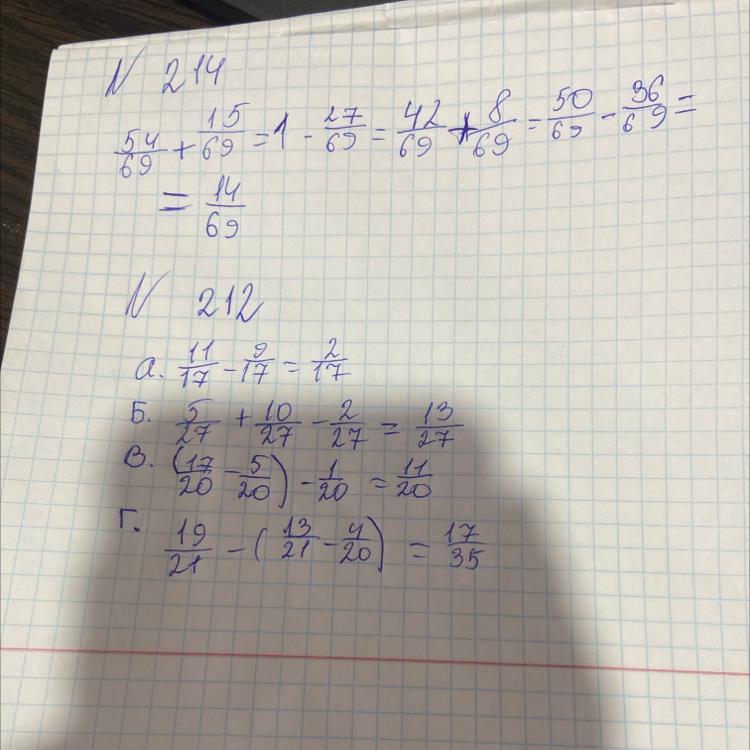 N 214
54/69 + 15/69 = 1 - 27/69 = 42/69 + 8/69 = 50/69 - 36/69 =
= 14/69
N 212
а. 11/17 - 9/17 = 2/17
Б. 5/27 + 10/27 - 2/27 = 13/27
В. (17/20 - 5/20) - 1/20 = 11/20
Г. 19/21 - (13/21 - 4/20) = 17/35